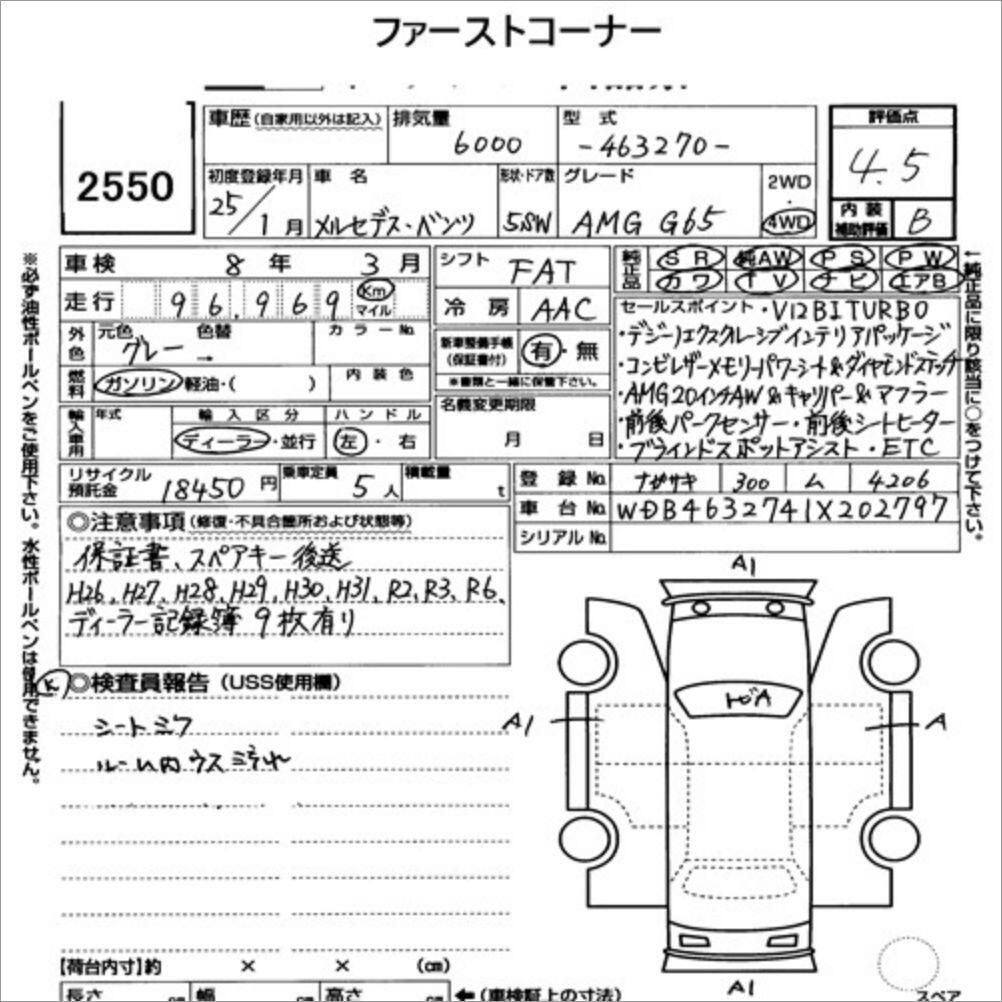 ファーストコーナー
2550
車歴 (自家用以外は記入)
排気量
6000
型式
-463270-
評価点
4.5
内装
補助評価
B
初度登録年月
25/1月
車名
メルセデス・ベンツ
形状・ドア数
5SW
グレード
AMG G65
2WD
・
4WD
車検 8年 3月
走行 96,969 Km マイル
シフト FAT
冷房 AAC
純正品
SR 純AW PS PW
カワ TV ナビ エアB
セールスポイント・V12BITURBO
・デジーノエクスクルーシブインテリアパッケージ
・コンビレザーメモリーパワーシート&ダイヤモンドステッチ
・AMG20インチAW&キャリパー&マフラー
・前後パークセンサー・前後シートヒーター
・ブラインドスポットアシスト・ETC
外色
元色 色替
グレー →
カラーNo.
燃料
ガソリン・軽油・( )
内装色
新車整備手帳
(保証書付)
有・無
※書類と一緒に保管下さい。
輸入車用
年式
輸入区分
ディーラー・並行
ハンドル
左・右
名義変更期限
月 日
リサイクル預託金 18450円
乗車定員 5人
積載量 t
登録No. ナガサキ 300 ム 4206
車台No. WDB4632741X202797
シリアルNo.
◎注意事項(修復・不具合箇所および状態等)
保証書、スペアキー後送
H26, H27, H28, H29, H30, H31, R2, R3, R6,
ディーラー記録簿 9枚有り
K
◎検査員報告(USS使用欄)
シートシワ
ルーム内ウスヨゴレ
A1
A1
A
A1
【荷台内寸】約 × × (㎝)
長さ ㎝ 幅 ㎝ 高さ ㎝ ←(車検証上の寸法)
スペア
※必ず油性ボールペンをご使用下さい。水性ボールペンは使用できません。
←純正品に限り該当に○をつけて下さい。